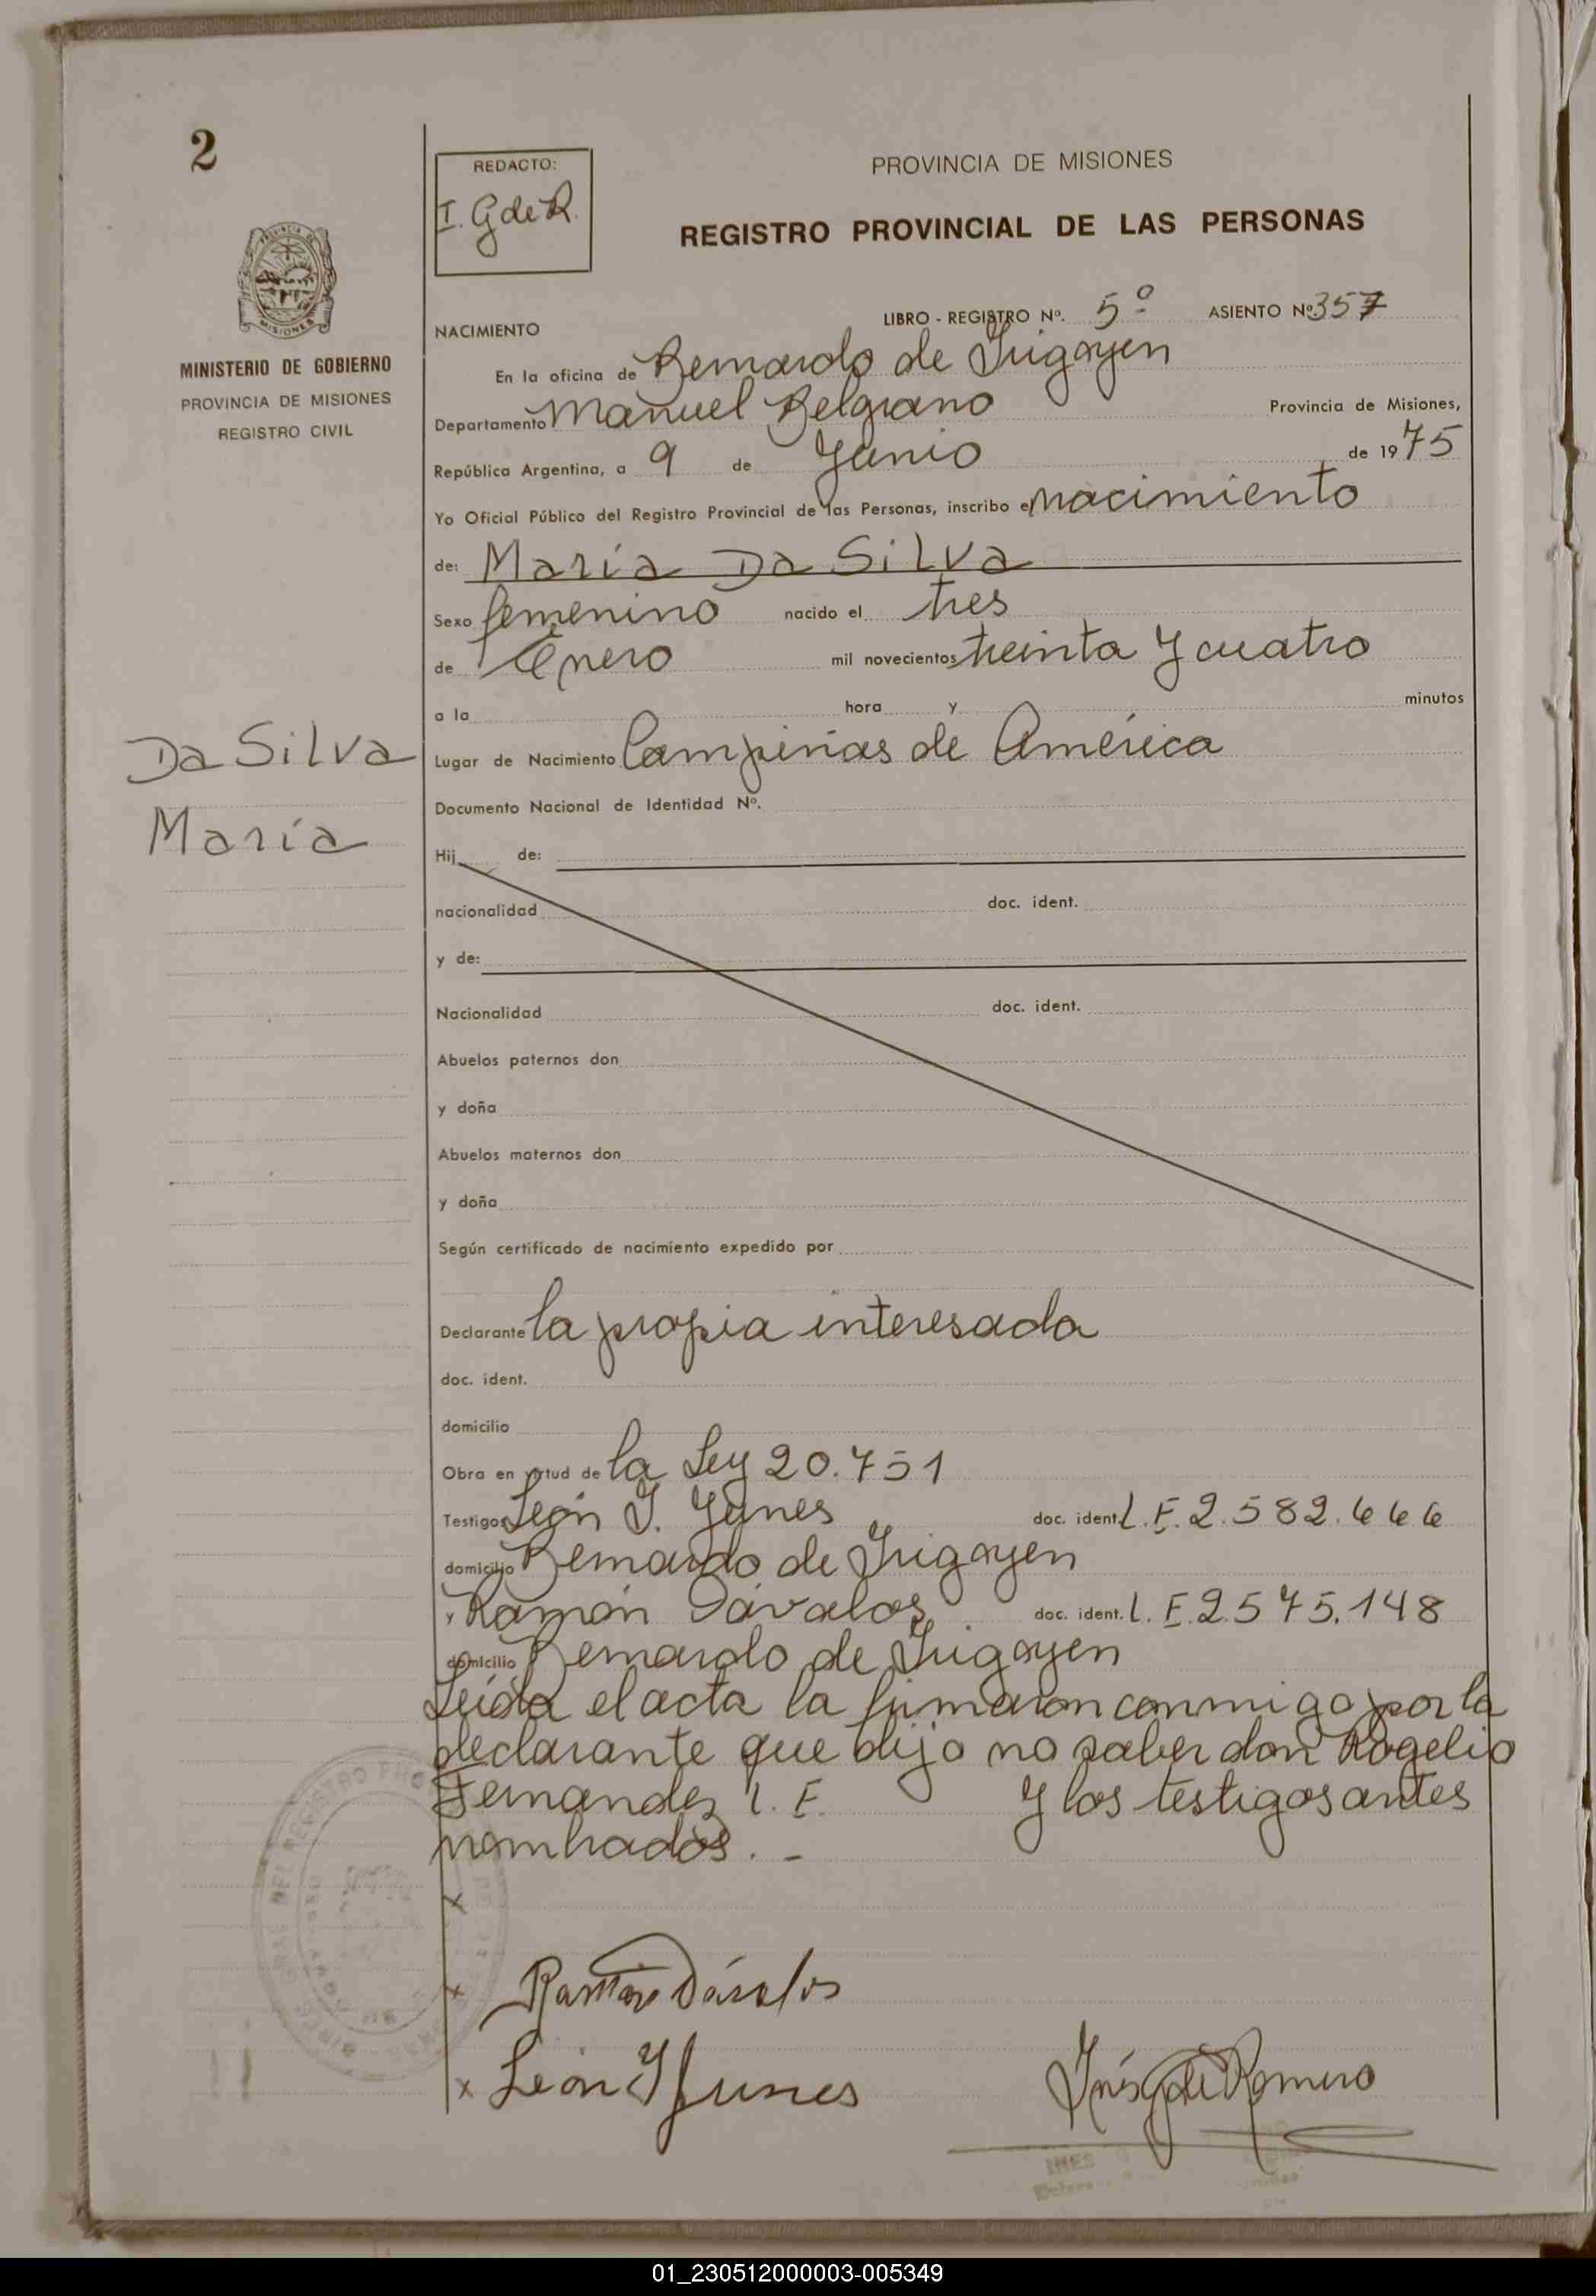 2
REDACTO:
I. G de R.
PROVINCIA DE MISIONES
REGISTRO PROVINCIAL DE LAS PERSONAS
MISIONES
MINISTERIO DE GOBIERNO
PROVINCIA DE MISIONES
REGISTRO CIVIL
NACIMIENTO
LIBRO - REGISTRO Nº. 5º ASIENTO Nº 357
En la oficina de Bernardo de Irigoyen
Departamento Manuel Belgrano Provincia de Misiones,
República Argentina, a 9 de Junio de 1975
Yo Oficial Público del Registro Provincial de las Personas, inscribo el nacimiento
de: María Da Silva
Sexo femenino nacido el tres
de Enero mil novecientos treinta y cuatro
a la hora y minutos
Da Silva
María
Lugar de Nacimiento Campiñas de América
Documento Nacional de Identidad Nº.
Hij de:
nacionalidad doc. ident.
y de:
Nacionalidad doc. ident.
Abuelos paternos don
y doña
Abuelos maternos don
y doña
Según certificado de nacimiento expedido por
Declarante la propia interesada
doc. ident.
domicilio
Obra en virtud de la Ley 20.751
Testigos León I. Yunes doc. ident. L.E. 2.582.666
domicilio Bernardo de Irigoyen
y Ramón Dávalos doc. ident. L.E. 2.575.148
domicilio Bernardo de Irigoyen
Leída el acta la firmaron conmigo por la
declarante que dijo no saber don Rogelio
Fernandez L.E. y los testigos antes
nombrados. -
x
x Ramón Dávalos
x León Y Yunes
Inés G de Romero
INES
01_230512000003-005349